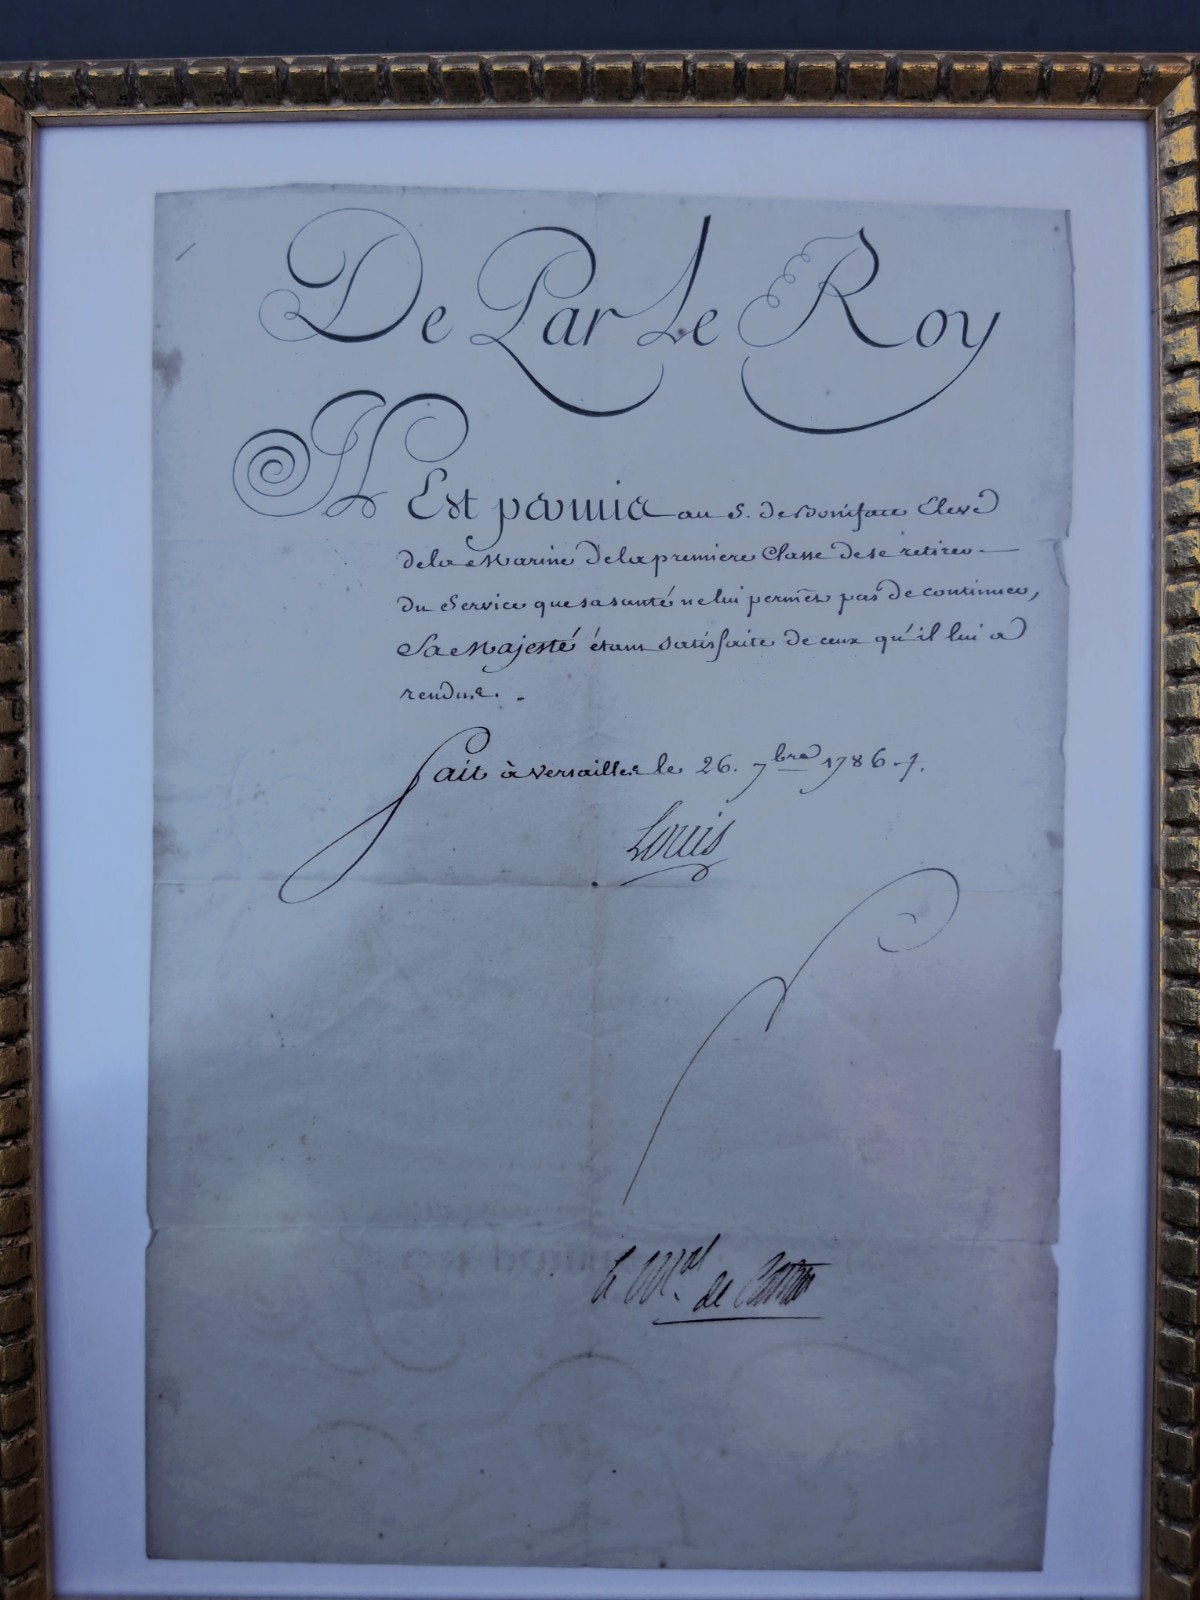 De Par Le Roy
Il Est permis au S. de Boniface Eleve
de la Marine de la premiere Classe de se retirer
du Service que sa santé ne lui permet pas de continuer,
Sa Majesté étant satisfaite de ceux qu'il lui a
rendus.
Fait à Versailles le 26. 7bre 1786.
Louis
le Mal de Castries